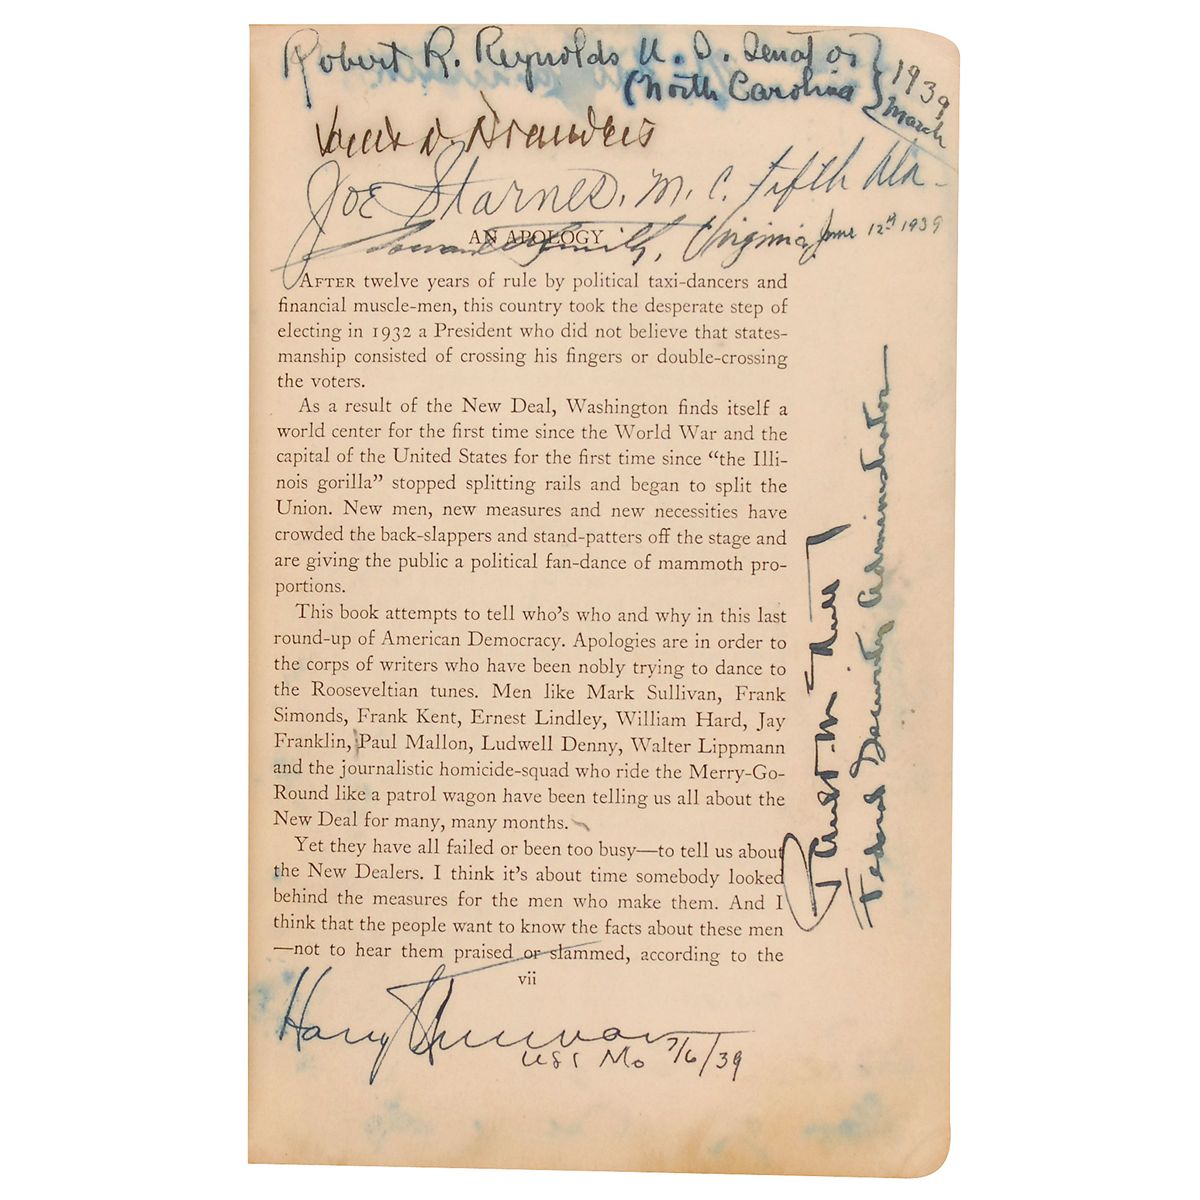 Robert R. Reynolds U. S. Senator
(North Carolina
1939
March
Louis D. Brandeis
Joe Starnes, M. C. Fifth Ala-
Howard W. Smith, Virginia, June 12th 1939
AN APOLOGY
AFTER twelve years of rule by political taxi-dancers and
financial muscle-men, this country took the desperate step of
electing in 1932 a President who did not believe that states-
manship consisted of crossing his fingers or double-crossing
the voters.
As a result of the New Deal, Washington finds itself a
world center for the first time since the World War and the
capital of the United States for the first time since “the Illi-
nois gorilla” stopped splitting rails and began to split the
Union. New men, new measures and new necessities have
crowded the back-slappers and stand-patters off the stage and
are giving the public a political fan-dance of mammoth pro-
portions.
This book attempts to tell who’s who and why in this last
round-up of American Democracy. Apologies are in order to
the corps of writers who have been nobly trying to dance to
the Rooseveltian tunes. Men like Mark Sullivan, Frank
Simonds, Frank Kent, Ernest Lindley, William Hard, Jay
Franklin, Paul Mallon, Ludwell Denny, Walter Lippmann
and the journalistic homicide-squad who ride the Merry-Go-
Round like a patrol wagon have been telling us all about the
New Deal for many, many months.
Yet they have all failed or been too busy—to tell us about
the New Dealers. I think it’s about time somebody looked
behind the measures for the men who make them. And I
think that the people want to know the facts about these men
—not to hear them praised or slammed, according to the
vii
Paul V. McNutt
Federal Security Administrator
Harry S Truman
USS Mo 7/6/39